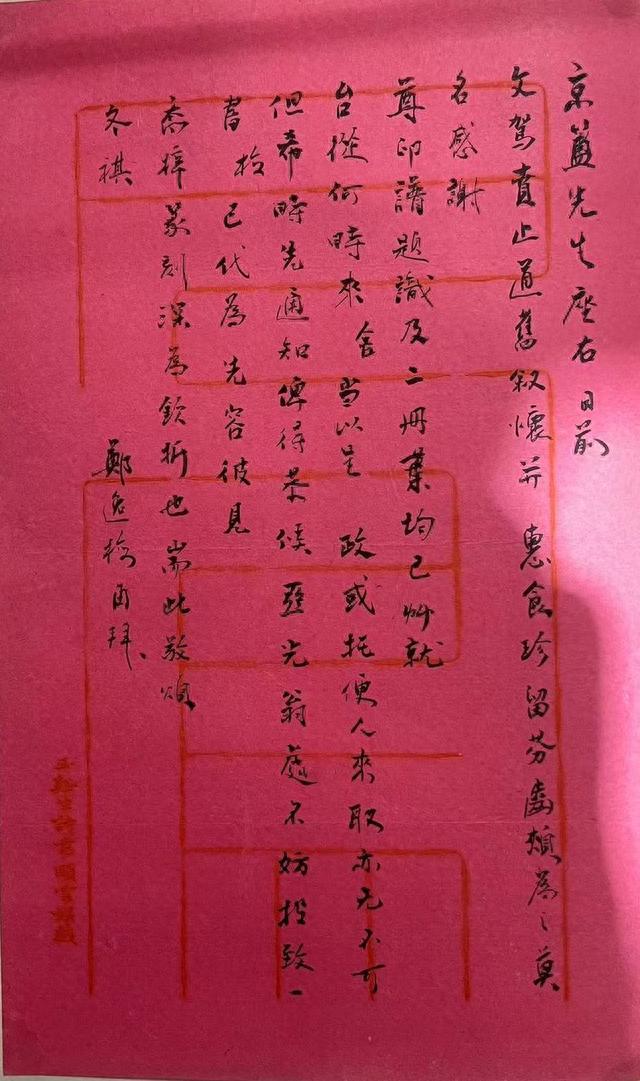 京盦先生座右日前
文驾賁止道舊叙懷并惠食珍留芬齒頰為之莫
名感謝
尊印譜題識及二冊葉均已艸就
台從何時來舍當以呈政或托便人來取亦无不可
但希時先通知俾得恭候亞光翁處不妨投致一
書梅已代為先容彼見
喬梓篆刻深為欽折也耑此敬頌
冬祺
鄭逸梅甫拜